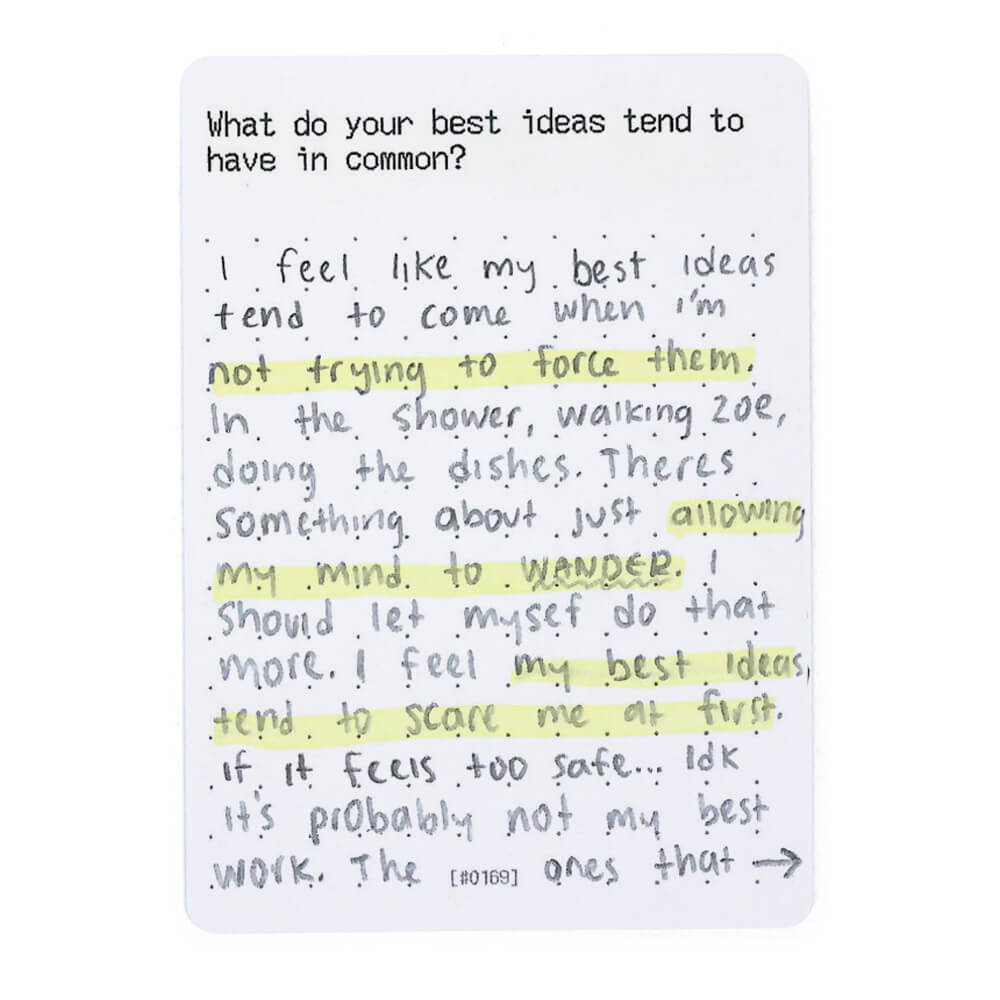 What do your best ideas tend to
have in common?
I feel like my best ideas
tend to come when I'm
not trying to force them.
In the shower, walking Zoe,
doing the dishes. Theres
something about just allowing
my mind to WANDER. I
should let mysef do that
more. I feel my best ideas
tend to scare me at first.
If it feels too safe... Idk
it's probably not my best
work. The [#0169] ones that →